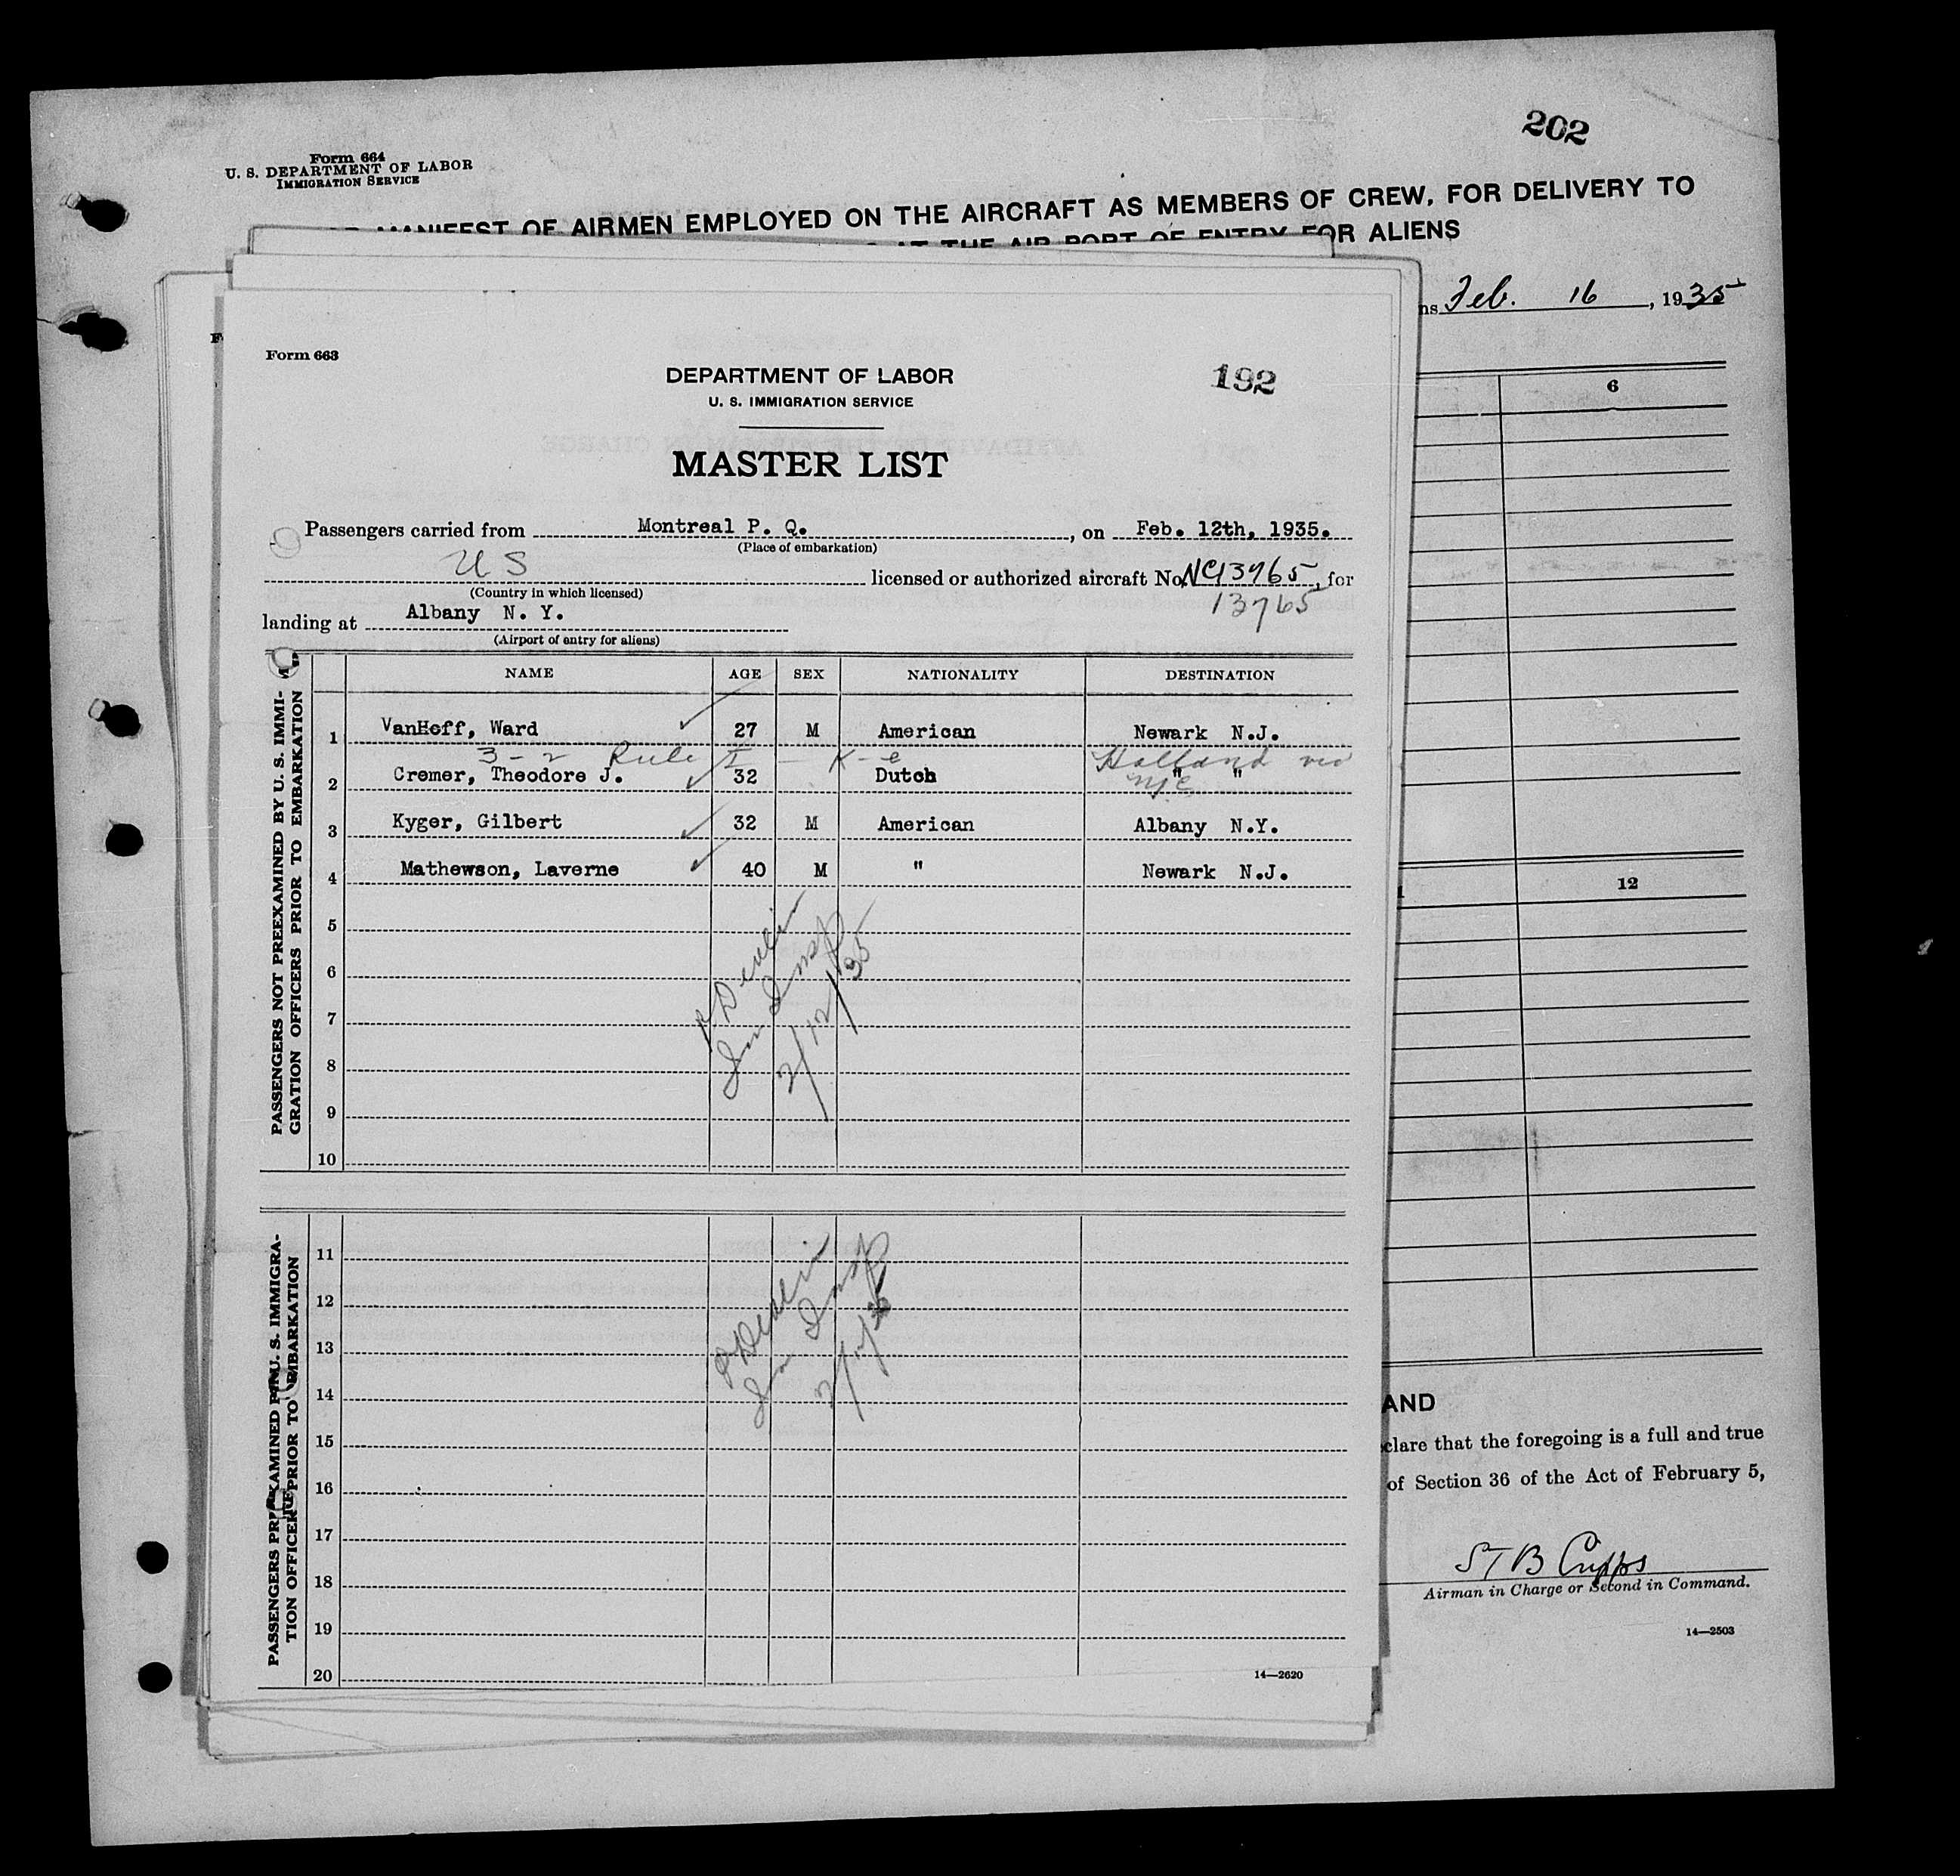 202
Form 664
U. S. DEPARTMENT OF LABOR
IMMIGRATION SERVICE
MANIFEST OF AIRMEN EMPLOYED ON THE AIRCRAFT AS MEMBERS OF CREW, FOR DELIVERY TO
AT THE AIR PORT OF ENTRY FOR ALIENS
Feb. 16, 1935
6
12
AND
clare that the foregoing is a full and true
of Section 36 of the Act of February 5,
S T B Cripps
Airman in Charge or Second in Command.
14—2503
Form 663
DEPARTMENT OF LABOR
U. S. IMMIGRATION SERVICE
192
MASTER LIST
Passengers carried from Montreal P. Q., on Feb. 12th, 1935.
(Place of embarkation)
U S licensed or authorized aircraft No. NC13765, for
(Country in which licensed)
13765
landing at Albany N. Y.
(Airport of entry for aliens)
NAME AGE SEX NATIONALITY DESTINATION
PASSENGERS NOT PREEXAMINED BY U. S. IMMI-
GRATION OFFICERS PRIOR TO EMBARKATION
1 VanHoff, Ward 27 M American Newark N.J.
3-2 Rule I K-e Holland via
2 Cremer, Theodore J. 32 Dutch " "
NYC
3 Kyger, Gilbert 32 M American Albany N.Y.
4 Mathewson, Laverne 40 M " Newark N.J.
5
6
7
8
9
10
P Devlin
Imm Insp
2/12/35
PASSENGERS PREEXAMINED BY U. S. IMMIGRA-
TION OFFICERS PRIOR TO EMBARKATION
11
12
13
14
15
16
17
18
19
20
P Devlin
Imm Insp
2/12/35
14—2620